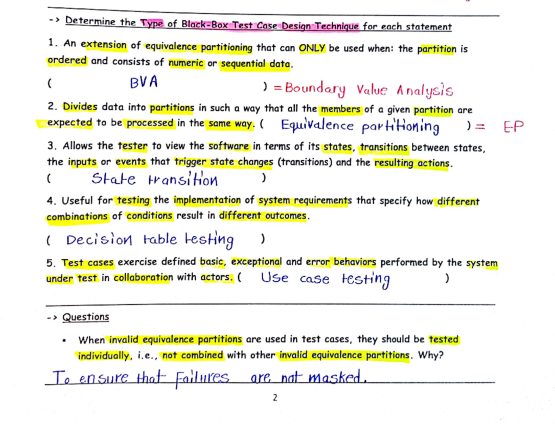 -> Determine the Type of Black-Box Test Case Design Technique for each statement
1. An extension of equivalence partitioning that can ONLY be used when: the partition is
ordered and consists of numeric or sequential data.
( BVA ) = Boundary Value Analysis
2. Divides data into partitions in such a way that all the members of a given partition are
expected to be processed in the same way. ( Equivalence partitioning ) = EP
3. Allows the tester to view the software in terms of its states, transitions between states,
the inputs or events that trigger state changes (transitions) and the resulting actions.
( State transition )
4. Useful for testing the implementation of system requirements that specify how different
combinations of conditions result in different outcomes.
( Decision table testing )
5. Test cases exercise defined basic, exceptional and error behaviors performed by the system
under test in collaboration with actors. ( Use case testing )
-> Questions
• When invalid equivalence partitions are used in test cases, they should be tested
individually, i.e., not combined with other invalid equivalence partitions. Why?
To ensure that failures are not masked.
2